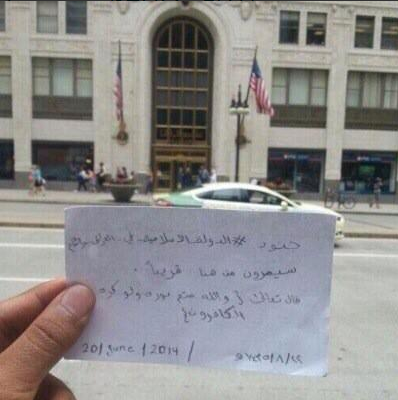 جنود #الدولة الاسلامية في العراق
سيمرون من هنا قريباً .
قال تعالى { والله متم نوره ولو كره
الكافرون }
20/June/2014/ ١٤٣٥/٨/٢٢